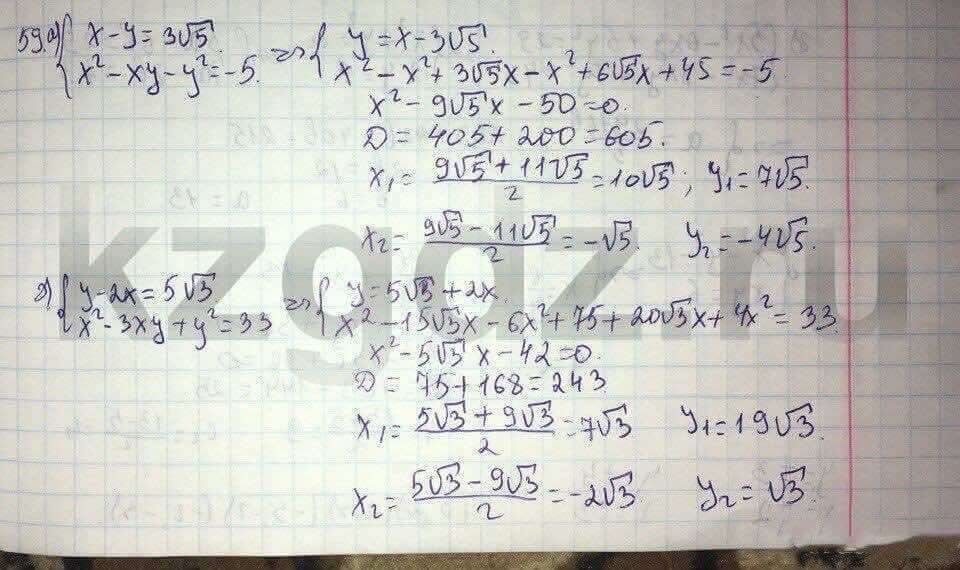 59.а) { x-y=3√5 => { y=x-3√5.
x²-xy-y²=-5. x²-x²+3√5x-x²+6√5x+45=-5
x²-9√5x-50=0.
D=405+200=605.
x₁=(9√5+11√5)/2=10√5; y₁=7√5.
x₂=(9√5-11√5)/2=-√5. y₂=-4√5.
kzgdz.ru
д) { y-2x=5√3 => { y=5√3+2x.
x²-3xy+y²=33 x²-15√3x-6x²+75+20√3x+4x²=33
x²-5√3x-42=0.
D=75+168=243.
x₁=(5√3+9√3)/2=7√3 y₁=19√3.
x₂=(5√3-9√3)/2=-2√3 y₂=√3.